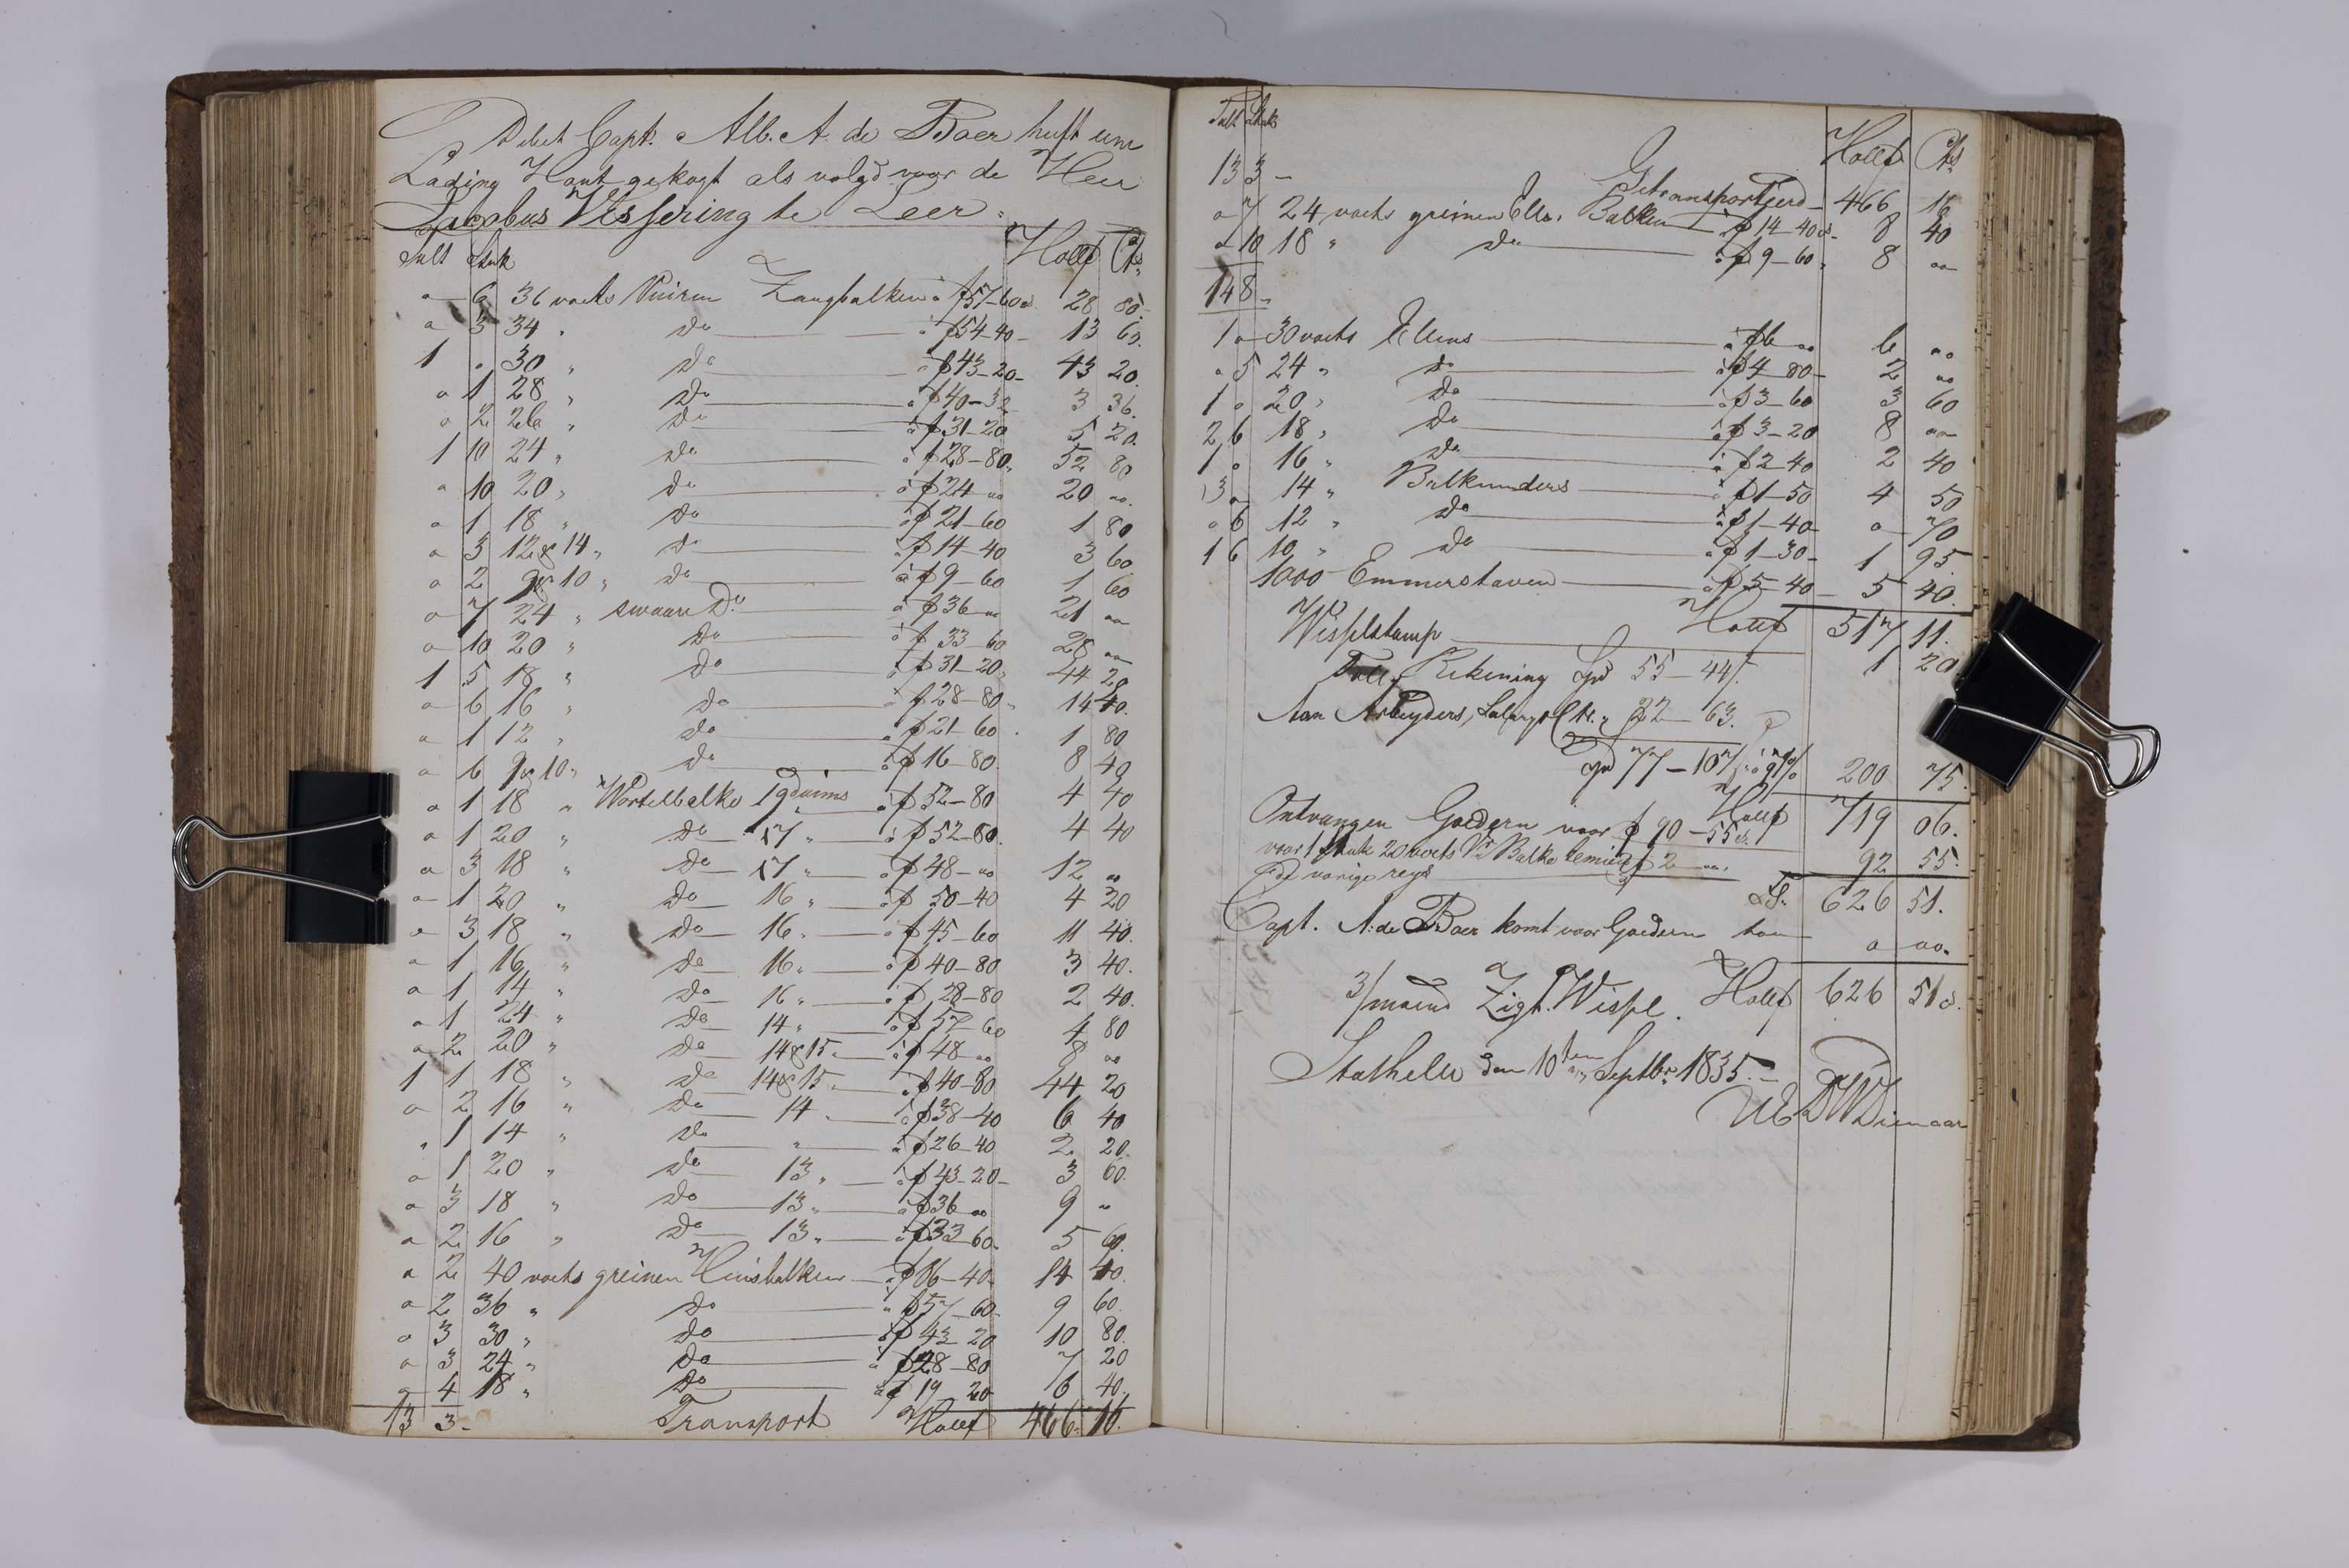 Debet Capt. Alb. A. de Boer heeft een
Lading Hout gekogt als volgd voor de Heer
Jacobus Vissering te Leer.
Tult Stuk Hollf Cts
" 6 36 voets Vuiren Zaagbalken à f57-60 28 80.
" 3 34 " do à f54-40 13 60.
1 " 30 " do à f43-20 43 20.
" 1 28 " do à f40-32 3 36.
" 2 26 " do à f31-20 5 20.
1 10 24 " do à f28-80 52 80
" 10 20 " do à f24 " 20 "
" 1 18 " do à f21-60 1 80
" 3 12 & 14 " do à f14-40 3 60
" 2 9 & 10 " do à f9-60 1 60
" 7 24 " swaare Do à f36 " 21 "
" 10 20 " do à f33-60 28 "
1 5 18 " do à f31-20 44 20
" 6 16 " do à f28-80 14 40.
" 1 12 " do à f21-60 1 80
" 6 9 & 10 " do à f16-80 8 40
" 1 18 " Wortelbalke 19 duims à f52-80 4 40
" 1 20 " do 17 " à f52-80 4 40
" 3 18 " do 17 " à f48-" 12 "
" 1 20 " do 16 " à f50-40 4 20
" 3 18 " do 16 " à f45-60 11 40.
" 1 16 " do 16 " à f40-80 3 40.
" 1 14 " do 16 " à f28-80 2 40.
" 1 24 " do 14 " à f57-60 4 80
" 2 20 " do 14 & 15 " à f48 " 8 "
1 1 18 " do 14 & 15 " à f40-80 44 20
" 2 16 " do 14 " à f38-40 6 40
" 1 14 " do " à f26-40 2 20.
" 1 20 " do 13 " à f43-20 3 60.
" 3 18 " do 13 " à f36 " 9 "
" 2 16 " do 13 " à f33 60 5 60.
" 2 40 voets greinen Huisbalken à f86-40 14 40.
" 2 36 " do à f57-60 9 60.
" 3 30 " do à f43-20 10 80.
" 3 24 " do à f28-80 7 20
" 4 18 " do à f19 20 6 40.
13 3 - Transport Hollf 466 16.
Tult Stuk Hollf Cts
13 3 - Getransportjerd 466 16
" 7 24 voets greinen Balken à f14-40 8 40
" 10 18 " do à f9-60 8 "
14 8 -
1 " 30 voets à f6 " 6 "
" 5 24 " do à f4-80 2 "
1 " 20 " do à f3-60 3 60
2 6 18 " do à f3-20 8 "
1 " 16 " do à f2-40 2 40
3 " 14 " à f1-50 4 50
" 6 12 " do à f1-40 " 70
1 6 10 " do à f1-30 1 95.
1000 Emmerstaven à f5-40 5 40.
Hollf 517 11.
Wisselstamp 1 20
Toll Rekening Spd 55-44/.
Aan Arbeyders, Salarys 22-63.
Spd 77-107/. 200 75.
Hollf 719 06.
Ontvangen Goedern voor f 90-55
voor 1 stuk 20 voets Balke f 2 " 92 55.
de vorige reys
626 51.
Capt. A. de Boer komt voor Goedern toe " "
3/maend Zigt. Wissel. Hollf 626 51
Stathelle den 10ten Septbr 1835.
UE DW Dienaar